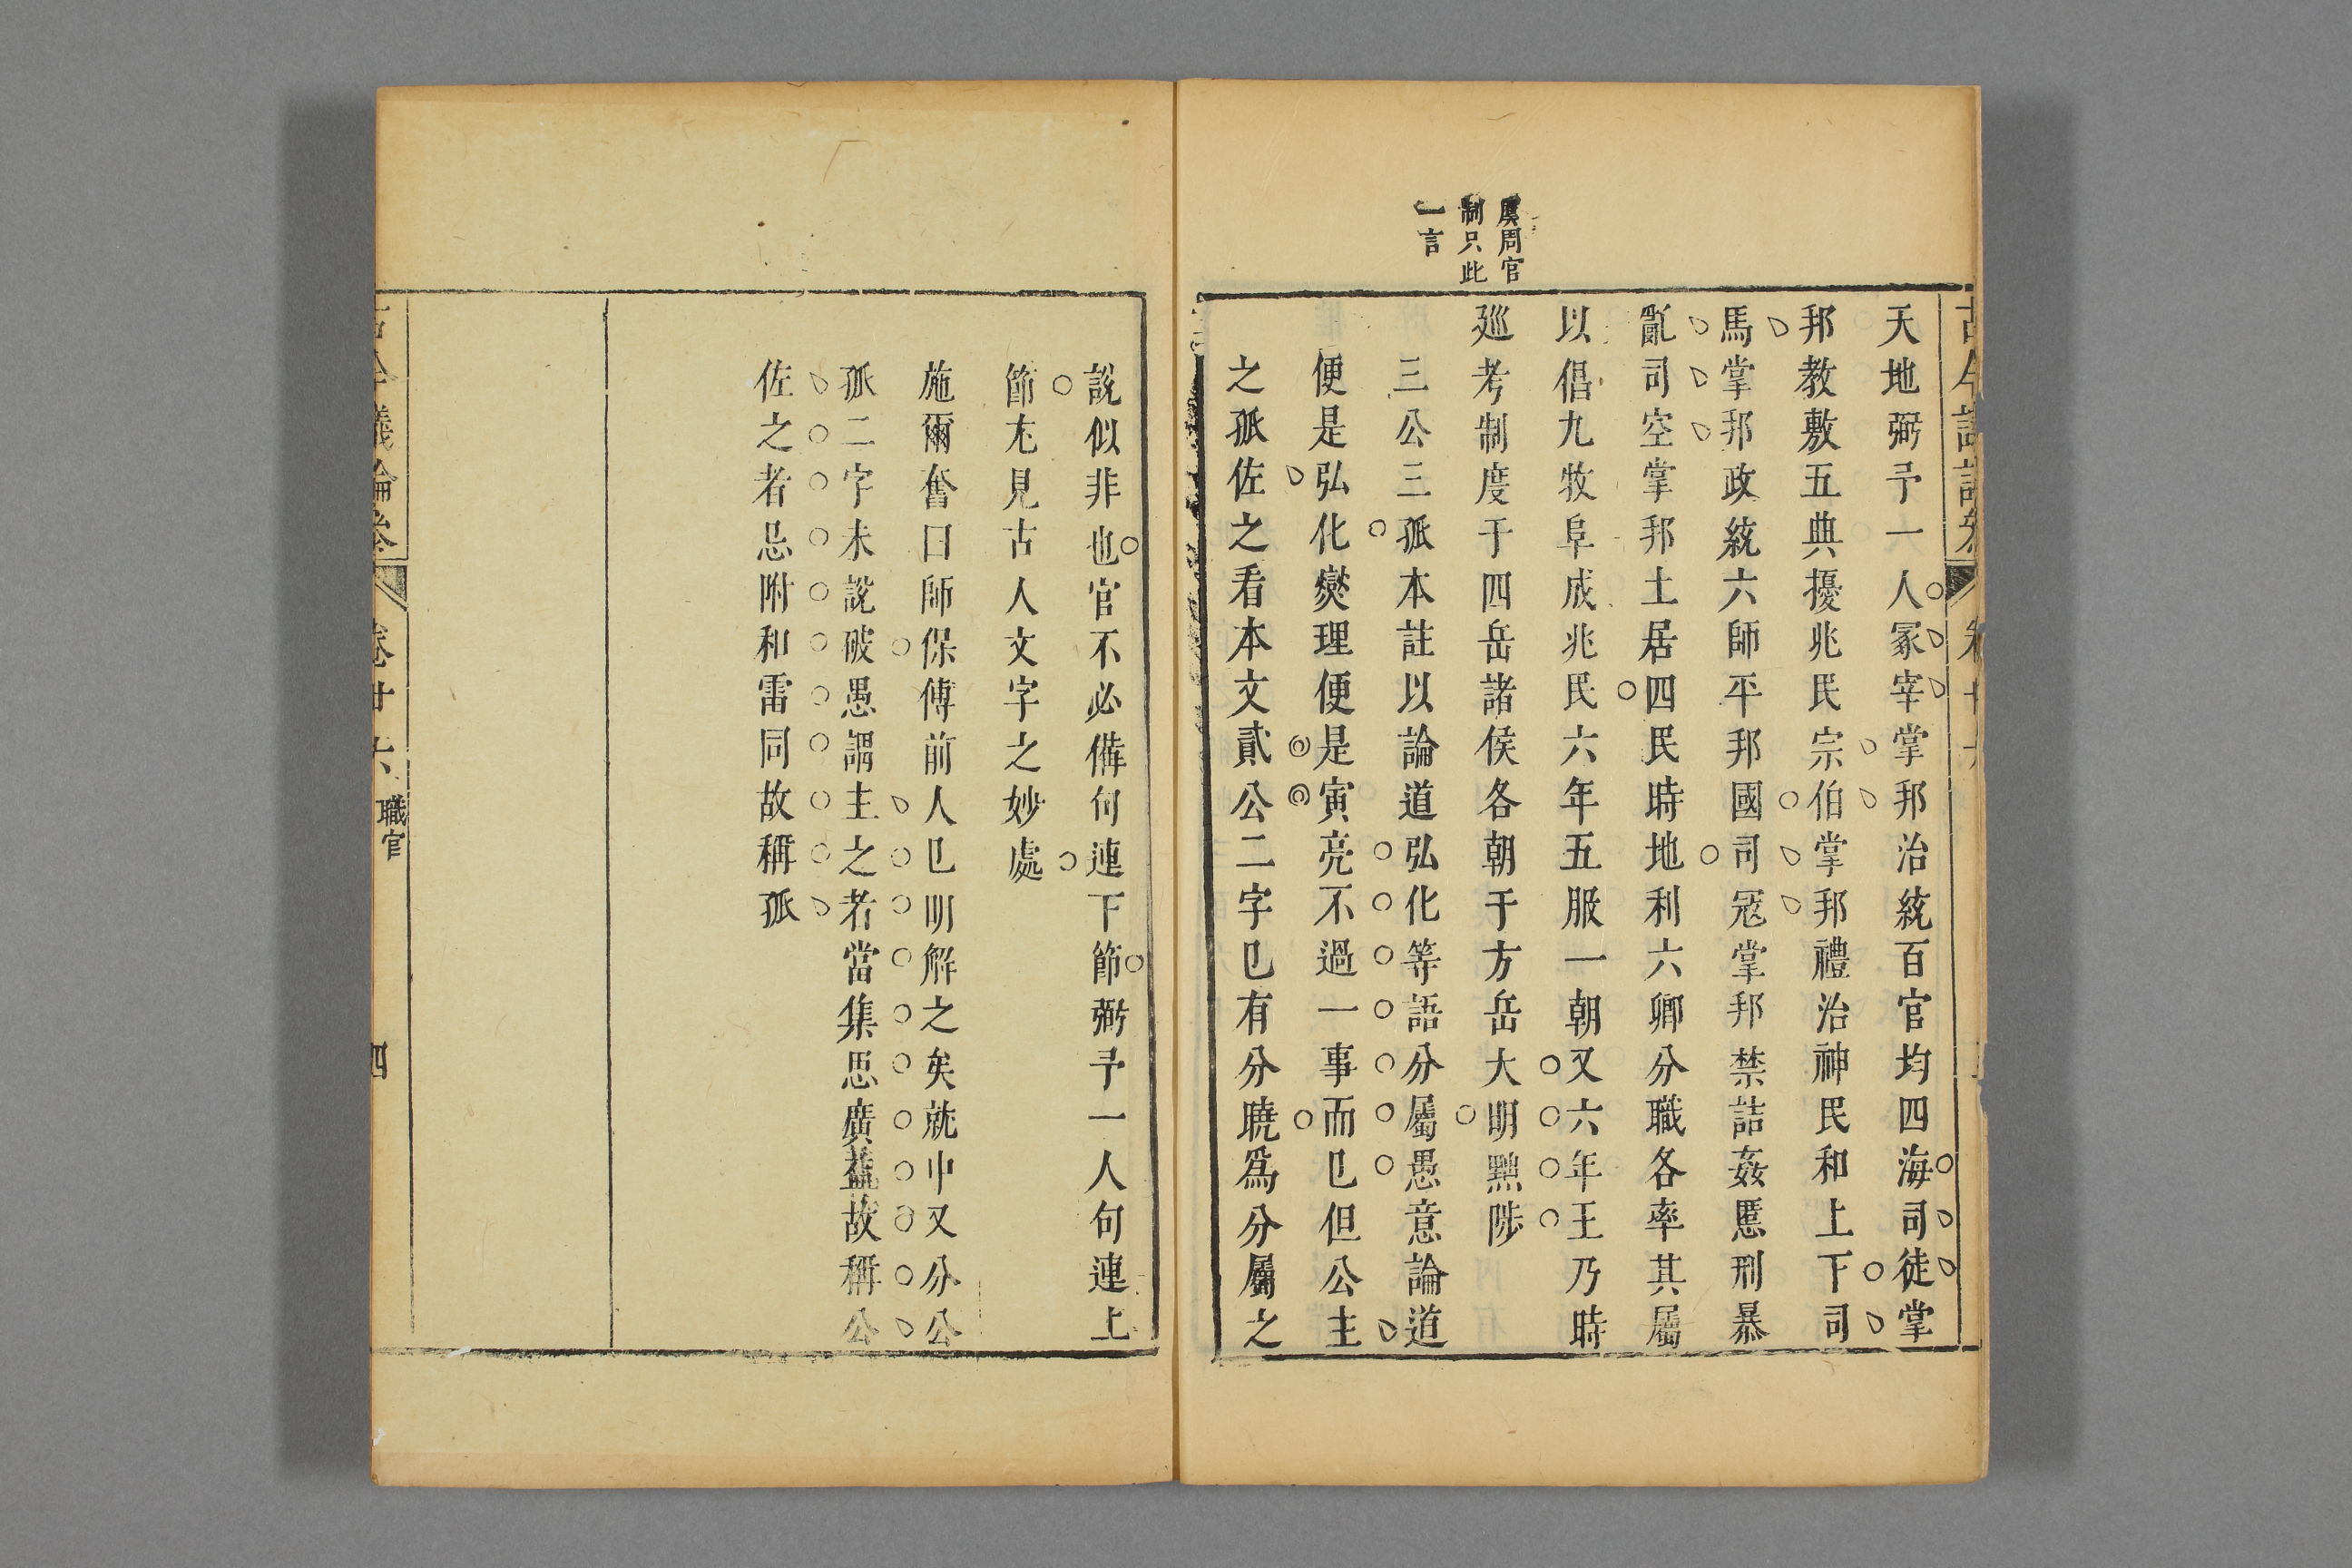 虞周官
制只此
一言
天地弼予一人冢宰掌邦治統百官均四海司徒掌
邦教敷五典擾兆民宗伯掌邦禮治神民和上下司
馬掌邦政統六師平邦國司冦掌邦禁詰姦慝刑暴
亂司空掌邦土居四民時地利六卿分職各率其屬
以倡九牧阜成兆民六年五服一朝又六年王乃時
廵考制度于四岳諸侯各朝于方岳大明黜陟
三公三孤本註以論道弘化等語分屬愚意論道
便是弘化爕理便是寅亮不過一事而已但公主
之孤佐之看本文貳公二字已有分曉爲分屬之
說似非也官不必備句連下節弼予一人句連上
節尤見古人文字之妙處
施爾奮曰師保傅前人已明解之矣就中又分公
孤二字未說破愚謂主之者當集思廣益故稱公
佐之者忌附和雷同故稱孤
古今議論叅
卷廿六
職官
四